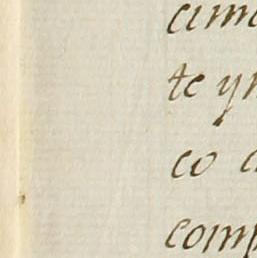 cimi
te yn
co c
comp